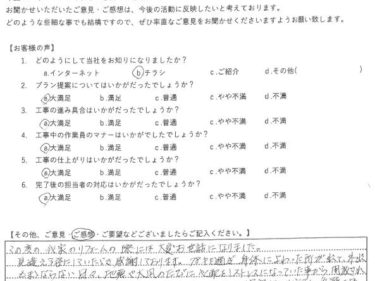 お聞かせいただいたご意見・ご感想は、今後の活動に反映したいと考えております。
どのような些細な事でも結構ですので、ぜひ率直なご意見をお聞かせくださいますようお願い致します。
【お客様の声】
1. どのようにして当社をお知りになりましたか？
a.インターネット b.チラシ c.ご紹介 d.その他( )
2. プラン提案についてはいかがだったでしょうか？
a.大満足 b.満足 c.普通 c.やや不満 d.不満
3. 工事の進み具合はいかがだったでしょうか？
a.大満足 b.満足 c.普通 c.やや不満 d.不満
4. 工事中の作業員のマナーはいかがでしたでしょうか？
a.大満足 b.満足 c.普通 c.やや不満 d.不満
5. 工事の仕上がりはいかがだったでしょうか？
a.大満足 b.満足 c.普通 c.やや不満 d.不満
6. 完了後の担当者の対応はいかがだったでしょうか？
a.大満足 b.満足 c.普通 c.やや不満 d.不満
【その他、ご意見・ご感想・ご要望などございましたらご記入ください。】
この度の我家のリフォームの際には大変お世話になりました。
感謝しております。